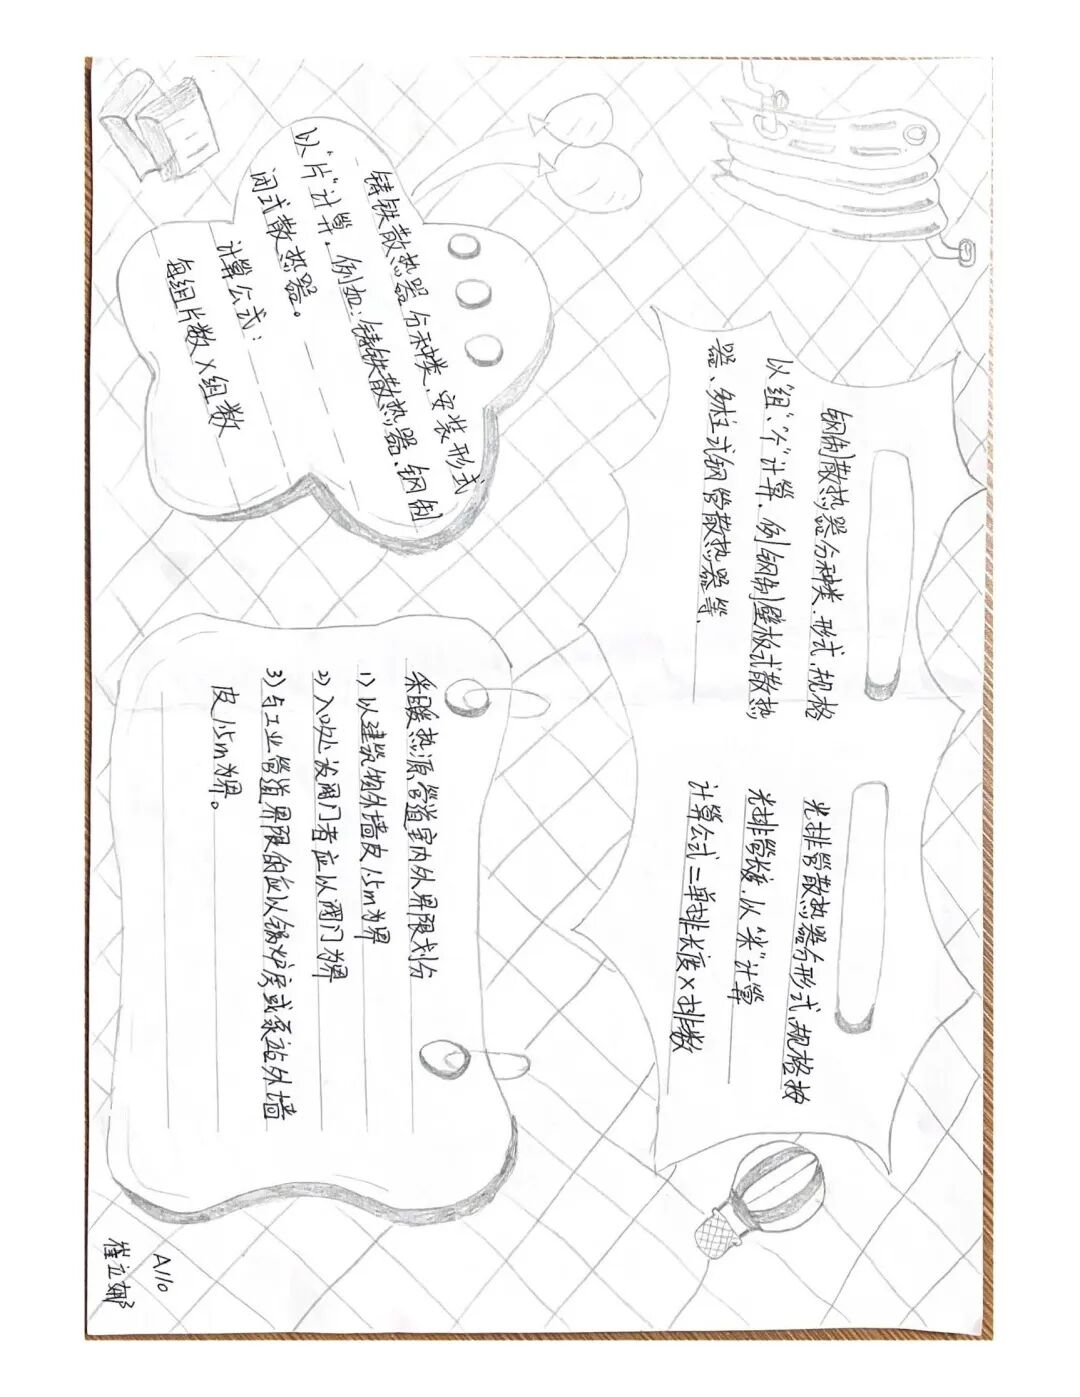 钢制散热器分种类、形式、规格
以"组"、"个"计算. 例钢制壁板式散热
器、柱式钢管散热器等.
光排管散热器分形式、规格按
光排管长度. 以"米"计算
计算公式=单排长度×排数
铸铁散热器分种类、安装形式
以"片"计算. 例如:铸铁散热器、钢制
闭式散热器。
计算公式:
每组片数×组数
采暖热源管道室内外界限划分
1) 以建筑物外墙皮1.5m为界
2) 入口处设阀门者应以阀门为界
3) 与工业管道界限的应以锅炉房或泵站外墙
皮1.5m为界。
A110
崔立娜